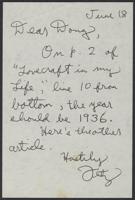 June 18
Dear Doug,
On p. 2 of
"Lovecraft in my
Life," line 10 from
bottom, the year
should be 1936.
Here's another
article.
Hastily
Fritz